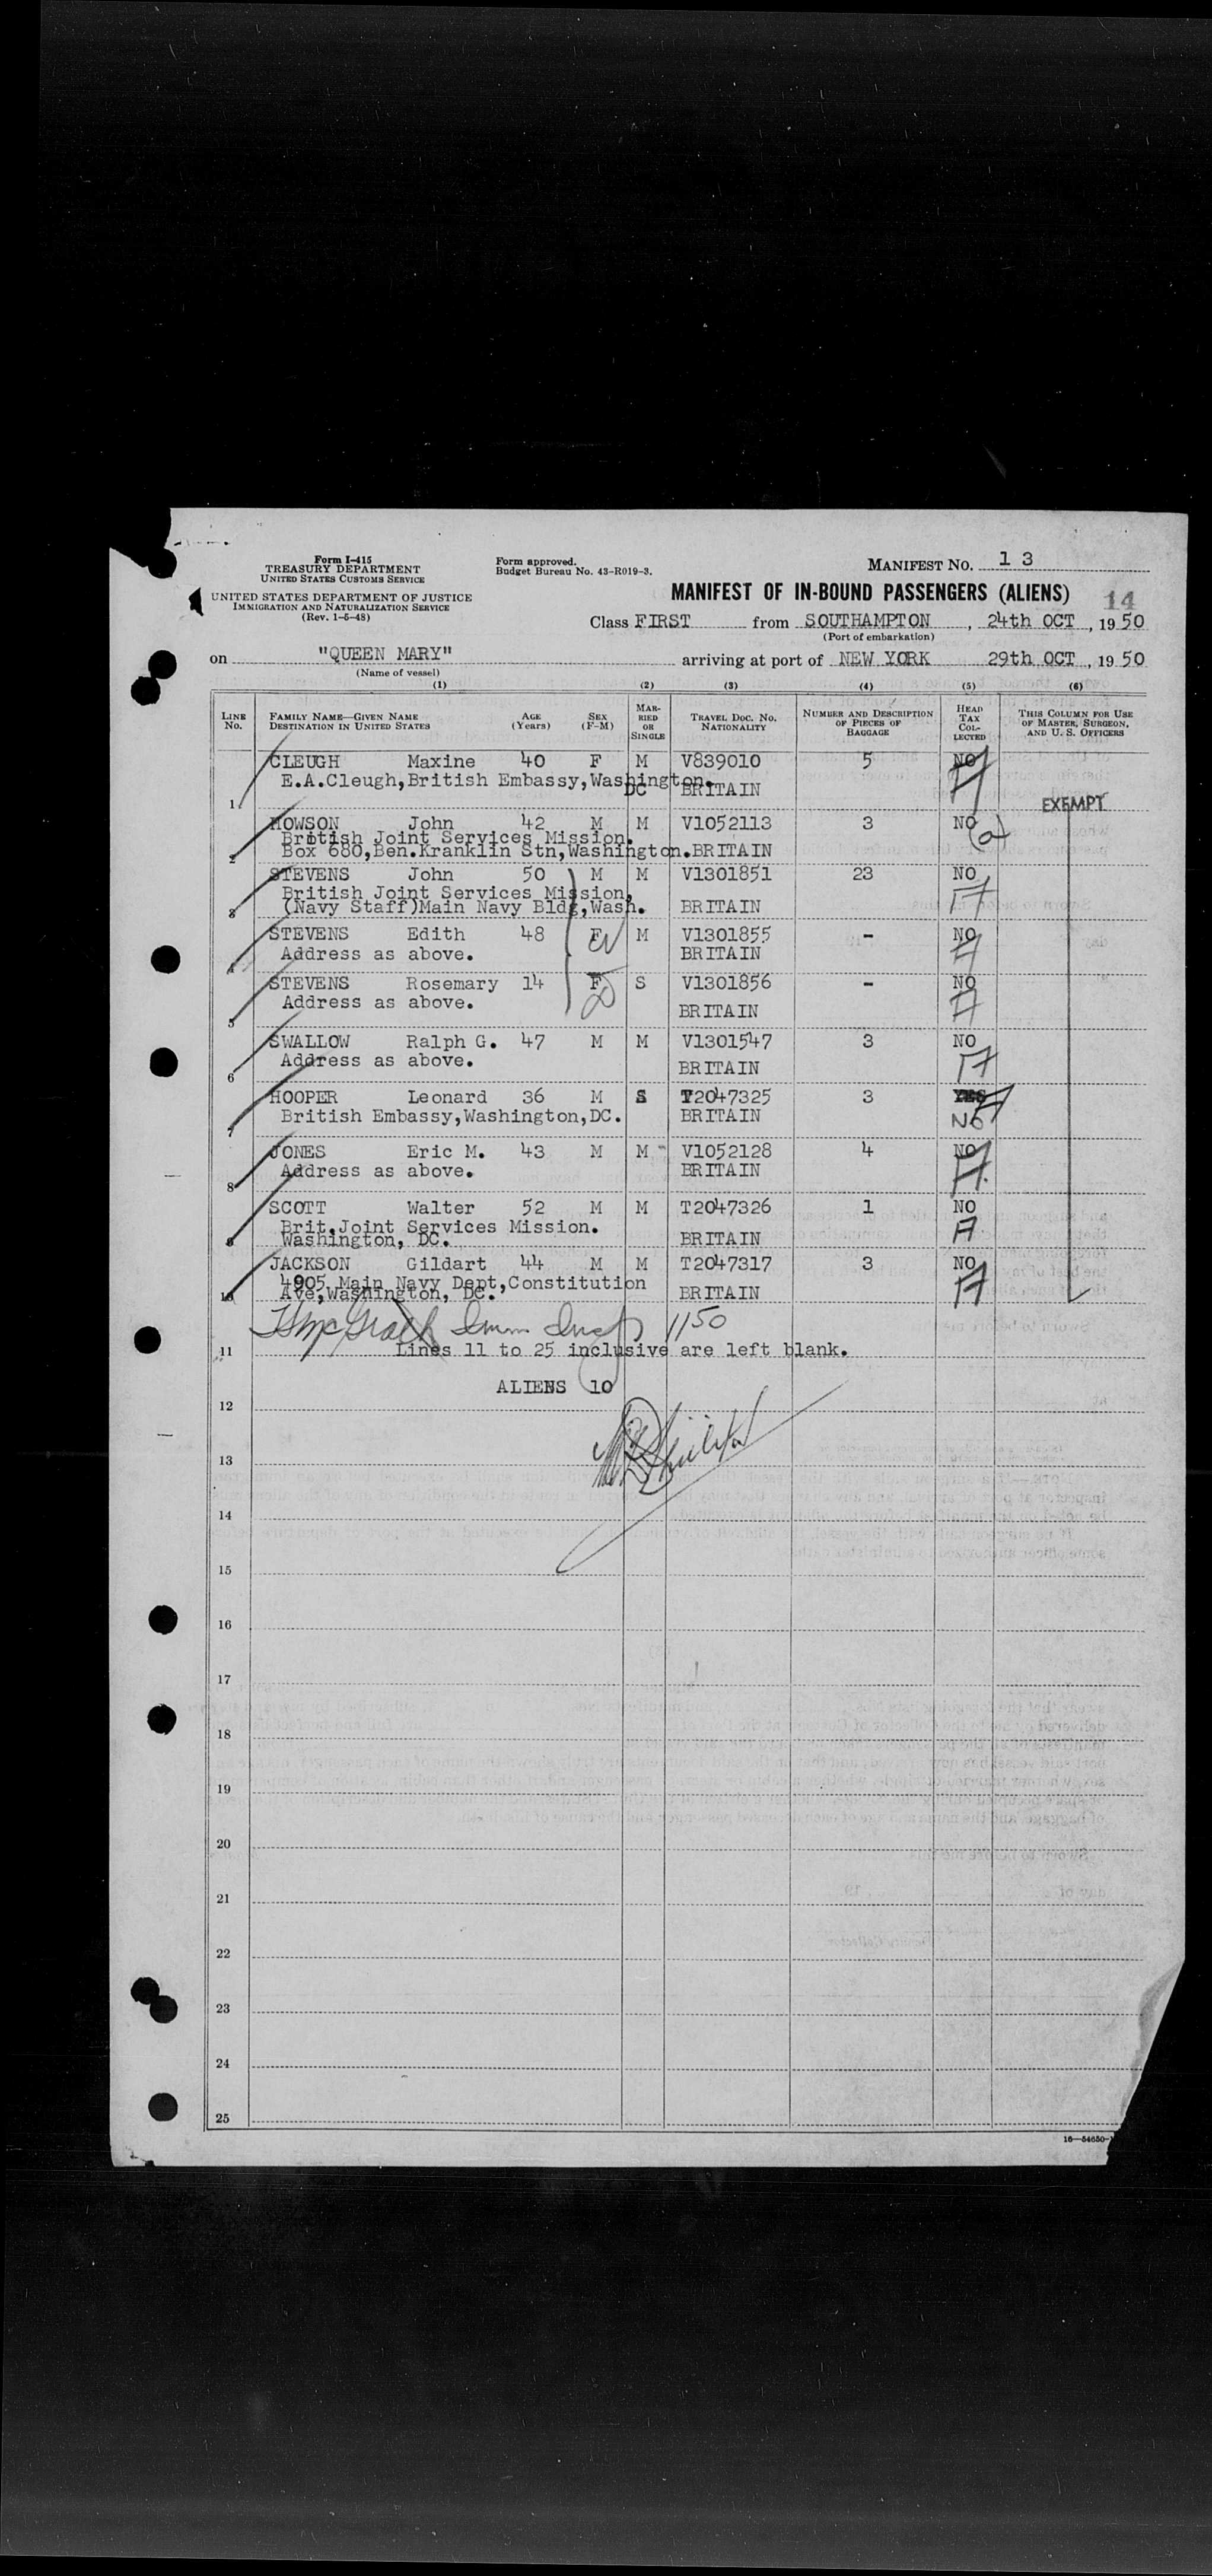 Form I-415
TREASURY DEPARTMENT
UNITED STATES CUSTOMS SERVICE
UNITED STATES DEPARTMENT OF JUSTICE
IMMIGRATION AND NATURALIZATION SERVICE
(Rev. 1-6-48)
Form approved.
Budget Bureau No. 43-R019-3.
MANIFEST No. 13
MANIFEST OF IN-BOUND PASSENGERS (ALIENS) 14
Class FIRST from SOUTHAMPTON, 24th OCT, 1950
(Port of embarkation)
on "QUEEN MARY" arriving at port of NEW YORK 29th OCT, 1950
(Name of vessel)
(1) (2) (3) (4) (5) (6)
LINE No.
FAMILY NAME—GIVEN NAME
DESTINATION IN UNITED STATES
AGE (Years)
SEX (F-M)
MARRIED OR SINGLE
TRAVEL DOC. NO.
NATIONALITY
NUMBER AND DESCRIPTION OF PIECES OF BAGGAGE
HEAD TAX COLLECTED
THIS COLUMN FOR USE OF MASTER, SURGEON, AND U. S. OFFICERS
CLEUGH Maxine 40 F M V839010 5 NO
E.A.Cleugh,British Embassy,Washington.
1 DC BRITAIN
EXEMPT
HOWSON John 42 M M V1052113 3 NO
British Joint Services Mission.
2 Box 680,Ben.Kranklin Stn,Washington. BRITAIN
STEVENS John 50 M M V1301851 23 NO
British Joint Services Mission,
3 (Navy Staff)Main Navy Bldg,Wash. BRITAIN
STEVENS Edith 48 F M V1301855 - NO
4 Address as above. BRITAIN
STEVENS Rosemary 14 F S V1301856 - NO
5 Address as above. BRITAIN
SWALLOW Ralph G. 47 M M V1301547 3 NO
6 Address as above. BRITAIN
HOOPER Leonard 36 M S T2047325 3 YES
7 British Embassy,Washington,DC. BRITAIN NO
JONES Eric M. 43 M M V1052128 4 NO
8 Address as above. BRITAIN
SCOTT Walter 52 M M T2047326 1 NO
Brit.Joint Services Mission.
9 Washington, DC. BRITAIN
JACKSON Gildart 44 M M T2047317 3 NO
4905 Main Navy Dept,Constitution
10 Ave,Washington, DC. BRITAIN
McGrath Imm Insp 1150
11 Lines 11 to 25 inclusive are left blank.
ALIENS 10
12
13
14
15
16
17
18
19
20
21
22
23
24
25